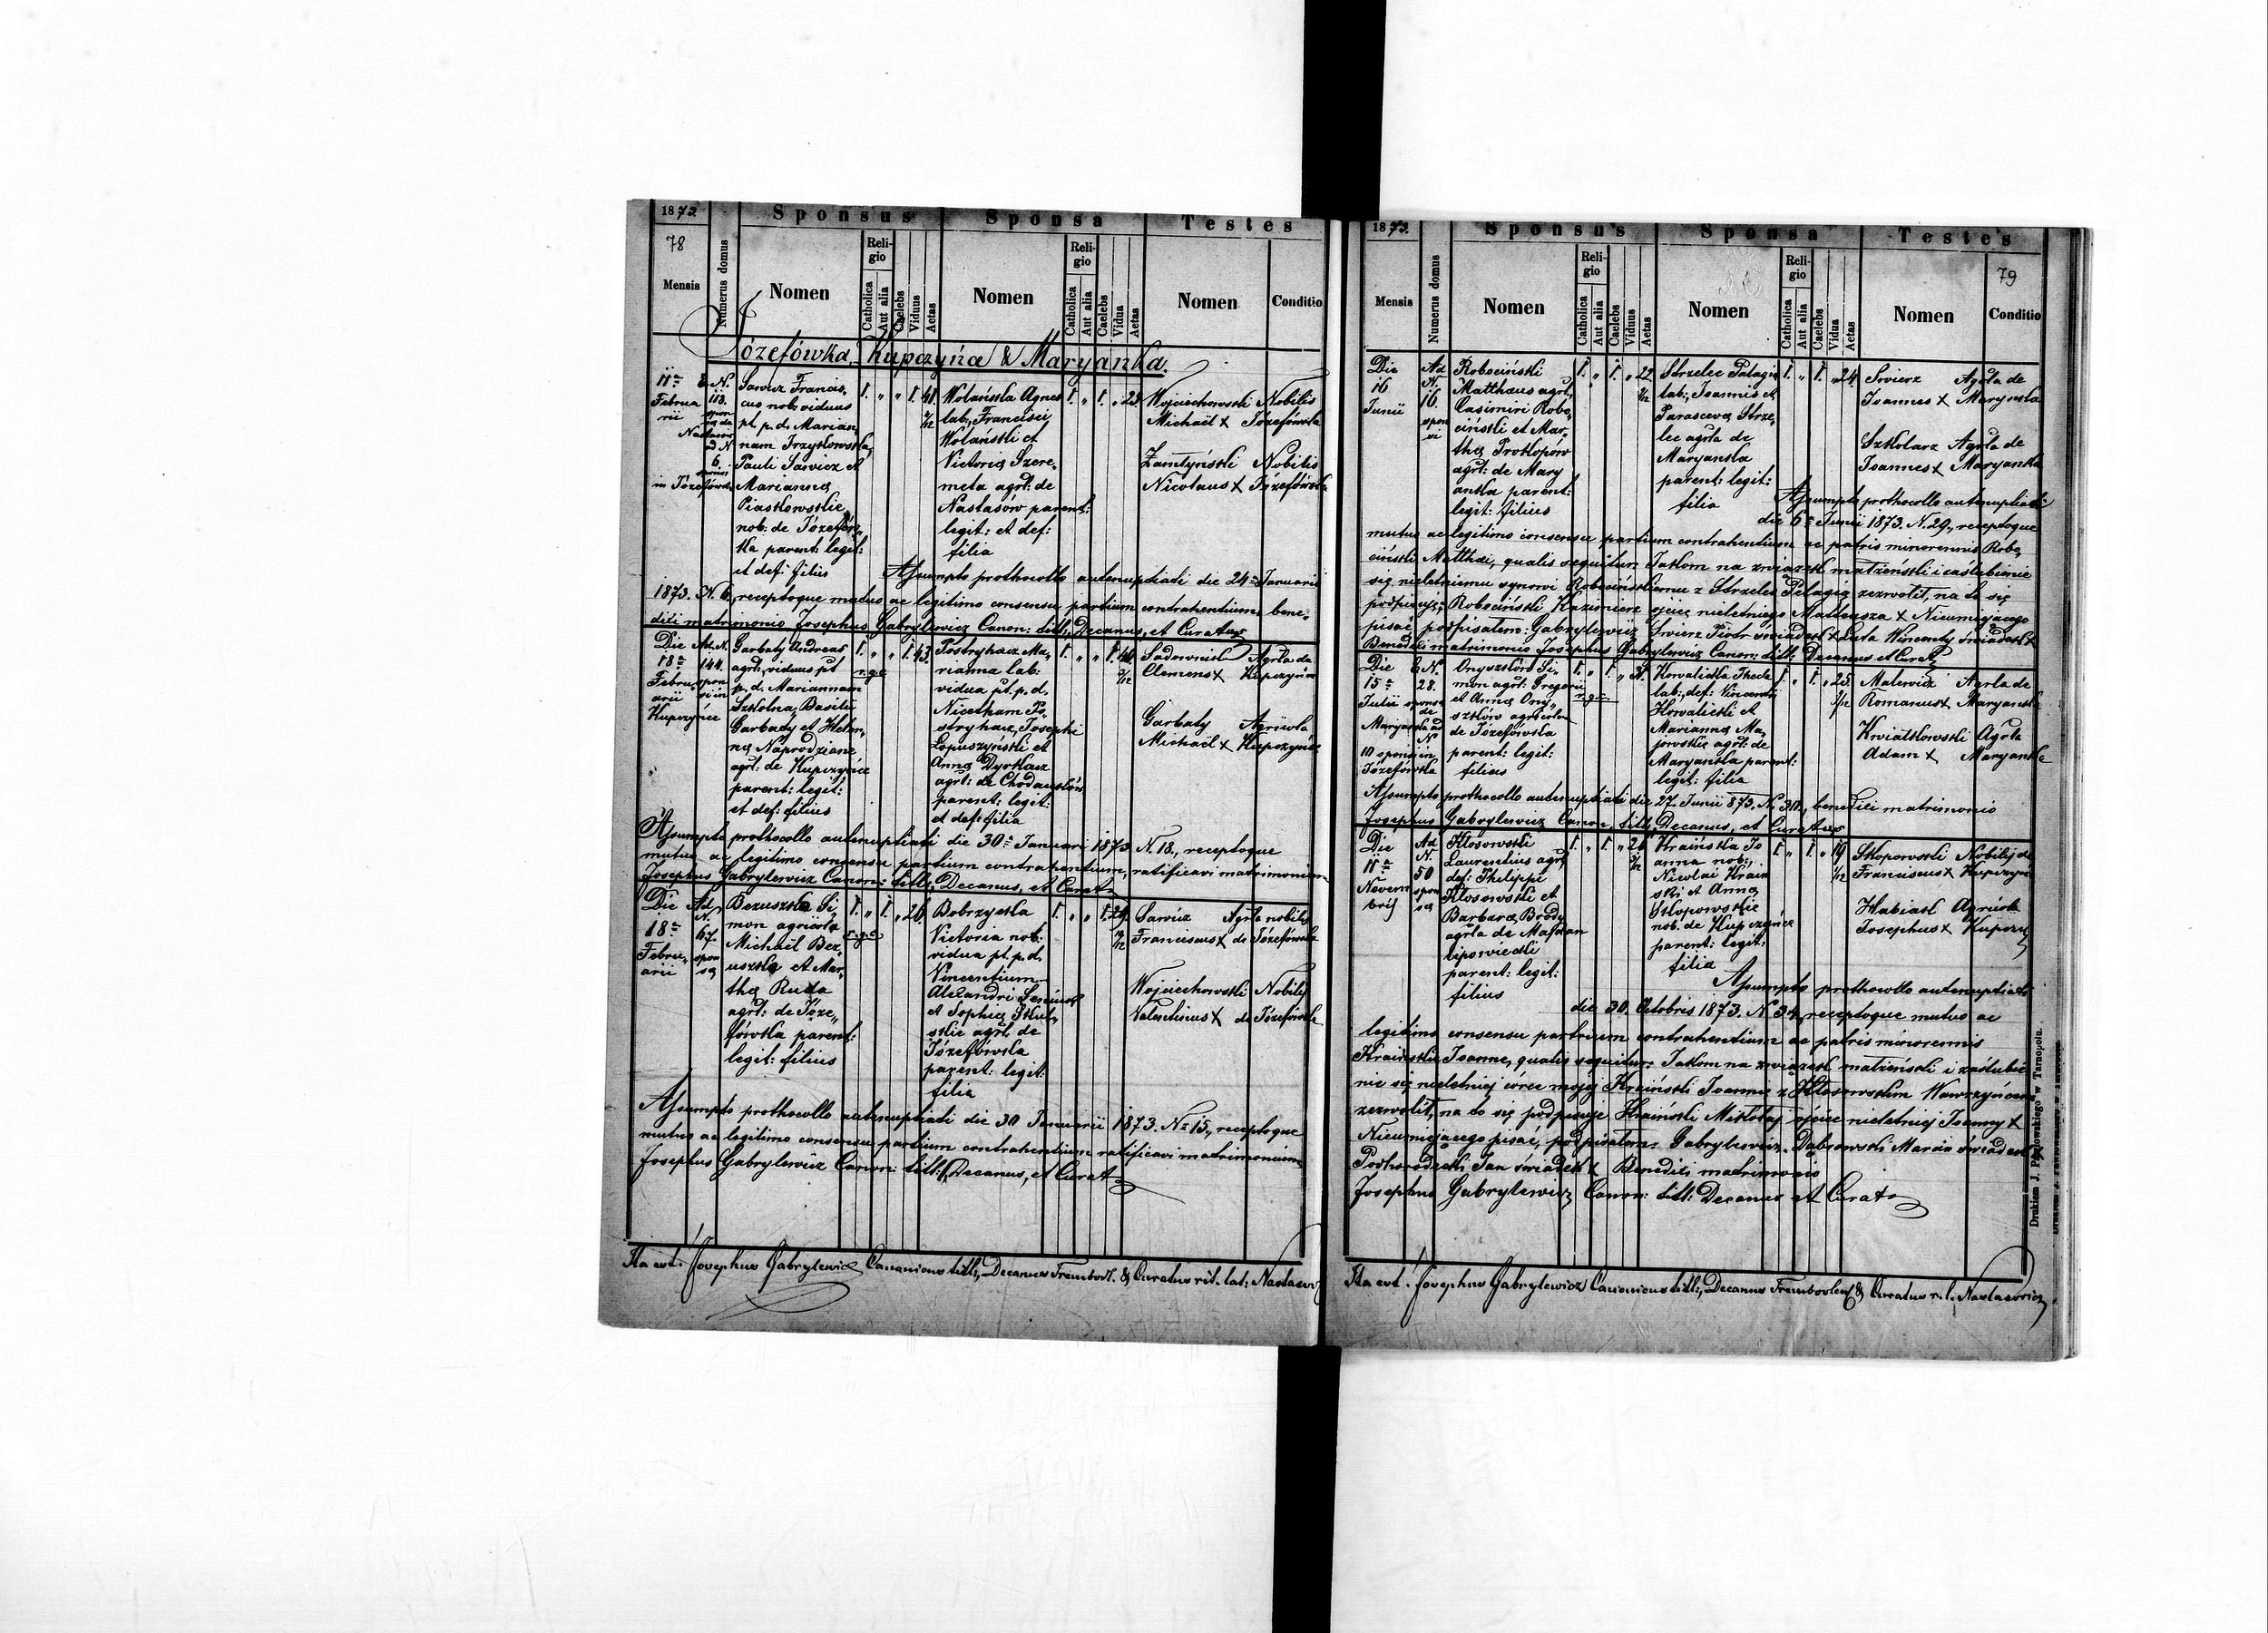 1873.
78
Mensis
Numerus domus
Sponsus
Nomen
Religio
Catholica
Aut alia
Caelebs
Viduus
Aetas
Sponsa
Nomen
Religio
Catholica
Aut alia
Caelebs
Vidua
Aetas
Testes
Nomen
Conditio
Józefówka, Kupczyńce & Maryanka.
11a
Februa
rii
E N.
113.
6.
in Józefówka
Francis,
cus nob: viduus
pt. p. d. Marian,
nam
Pauli
Marianna
Piaskowskie
nob: de Józefów,
ka parent: legit:
et def: filius
41
Wolańska Agnes
lab: Francisci
Wolański et
Victoria Szere,
meta agrl: de
Nastasów parent:
legit: et def:
filia
Wojciechowski Nobilis
Michaël X Józefówka
Zamłyński Nobilis
Nicolaus X Józefówka
Assumpto prothocollo antenuptiali die 24a Januarii
1873. N. 6., receptoque mutuo ac legitimo consensu partium contrahentium bene,
dixi matrimonio Josephus Gabrylewicz Canon: tit:, Decanus, et Curatus
Die
18a
Febru,
arii
Kupczyńce
Ad N.
144.
spon
si in
Garbaty Andreas
agrl: viduus pt
p. d. Mariannam
Szkolna, Basilii
Garbaty et Hele,
na Naprodziane
agrl: de Kupczyńce
parent: legit:
et def: filius
r.g.c
43.
Postryhacz Ma,
rianna lab:
vidua pt. p. d.
Nicetham Po,
stryhacz, Josephi
Łopuszyński et
Anna Dyrkacz
agrl: de Chodaczków
parent: legit:
et def: filia
Sadowniski Agrla de
Clemens X Kupczyńce
Garbaty Agricola
Michaël X Kupczyńce
Assumpto prothocollo antenuptiali die 30a Januari 1873 N. 18., receptoque
mutuo ac legitimo consensu partium contrahentium, ratificavi matrimonium
Josephus Gabrylewicz Canon: tit:, Decanus, et Curat
Die
18a
Febru,
arii
Ad
N.
67.
spon
sa
Bezuszka Si,
mon agricola
Michaël Bez,
uszka et Mar,
tha Ruda
agrl: de Józe,
fówka parent:
legit: filius
r.g.c
26
Bobrzycka
Victoria nob:
vidua pt. p. d.
Vincentium
Alexandri
et Sophia
agrl: de
Józefówka
parent: legit:
filia
29
Sawicz Agrla nobilis
Franciscus X de Józefówka
Wojciechowski Nobilis
Valentinus X de Józefówka
Assumpto prothocollo antenuptiali die 30 Januarii 1873. No 15., receptoque
mutuo ac legitimo consensu partium contrahentium ratificavi matrimonium
Josephus Gabrylewicz Canon: tit:, Decanus, et Curat
Ita est. Josephus Gabrylewicz Canonicus tit:, Decanus Trembowl. & Curatus rit. lat: Nastasov
1873.
79
Mensis
Numerus domus
Sponsus
Nomen
Religio
Catholica
Aut alia
Caelebs
Viduus
Aetas
Sponsa
Nomen
Religio
Catholica
Aut alia
Caelebs
Vidua
Aetas
Testes
Nomen
Conditio
Die
16
Junii
Ad
N.
16.
spon
si
Robociński
Matthæus agrl,
Casimiri Robo,
ciński et Mar,
tha Prokopów
agrl: de Mary
anka parent:
legit: filius
22
Strzelec Pelagia
lab:, Joannis et
Parasceva Strze,
lec agrla de
Maryanka
parent: legit:
filia
24
Świerz Agrla de
Joannes X Maryanka
Szkolarz Agrla de
Joannes X Maryanka
Assumpto prothocollo antenuptiali
die 6a Junii 1873. N. 29., receptoque
mutuo ac legitimo consensu partium contrahentium ac patris minorennis Robo,
ciński Matthæi, qualis sequitur: Jakom na związek małżeński i zaślubienie
się nieletniemu synowi Robocińskiemu z Strzelec Pelagią zezwolił, na to się
podpisuję: Robociński Kazimierz ojciec nieletniego Matteusza X Nieumiejącego
pisać podpisałem: Gabrylewicz Świerz Piotr świadek X Luta Wincenty świadek X
Benedixi matrimonio Josephus Gabrylewicz Canon: tit: Decanus et Curat
Die
15a
Julii
E N.
28.
sponsa
de
Maryanka ad
No
10 sponsi in
Józefówka
Onyszków Si,
mon agrl: Gregorii
et Anna Ony,
szków agricola
de Józefówka
parent: legit:
filius
r.g.c.
Kowalicka Thecla
lab:, def: Vincentii
Kowalicki et
Marianna Ma,
jewskie agrl: de
Maryanka parent:
legit: filia
25
Malewicz Agrla de
Romanus X Maryanka
Kwiatkowski Agrla
Adam X Maryanka
Assumpto prothocollo antenuptiali die 27. Junii 873. N. 30., benedixi matrimonio
Josephus Gabrylewicz Canon: tit:, Decanus, et Curatus
Die
11a
Novem
bris
Ad
N.
50
spon
sa
Kłosowski
Laurentius agrl,
def: Philippi
Kłosowski et
Barbara Brody
agrla de Majdan
lipowiecki
parent: legit:
filius
Kraińska Jo
anna nob:,
Nicolai Krain
ski et Anna
Skopowskie
nob. de Kupczyńce
parent: legit:
filia
19
Skopowski Nobilis de
Franciscus X Kupczyńce
Habiak Agricola
Josephus X Kupczy
Assumpto prothocollo antenuptiali
die 30. Octobris 1873. N. 34, receptoque mutuo ac
legitimo consensu partium contrahentium ac patris minorennis
Kraińskie Joanne, qualis sequitur: Jakom na związek małżeński i zaślubie
nie się nieletniej córce mojej Kraiński Joannie z Kłosowskim Wawrzyńcem
zezwolił, na to się podpisuję Kraiński Mikołaj ojciec nieletniej Joanny X
Nieumiejącego pisać, podpisałem Gabrylewicz. Dąbrowski Marcin świadek
Podhorodecki Jan świadek X Benedixi matrimonio
Josephus Gabrylewicz Canon: tit: Decanus et Curat
Ita est. Josephus Gabrylewicz Canonicus tit:, Decanus Trembovlens & Curatus r. l. Nastasovien
Drukiem J. Pawłowskiego w Tarnopolu.